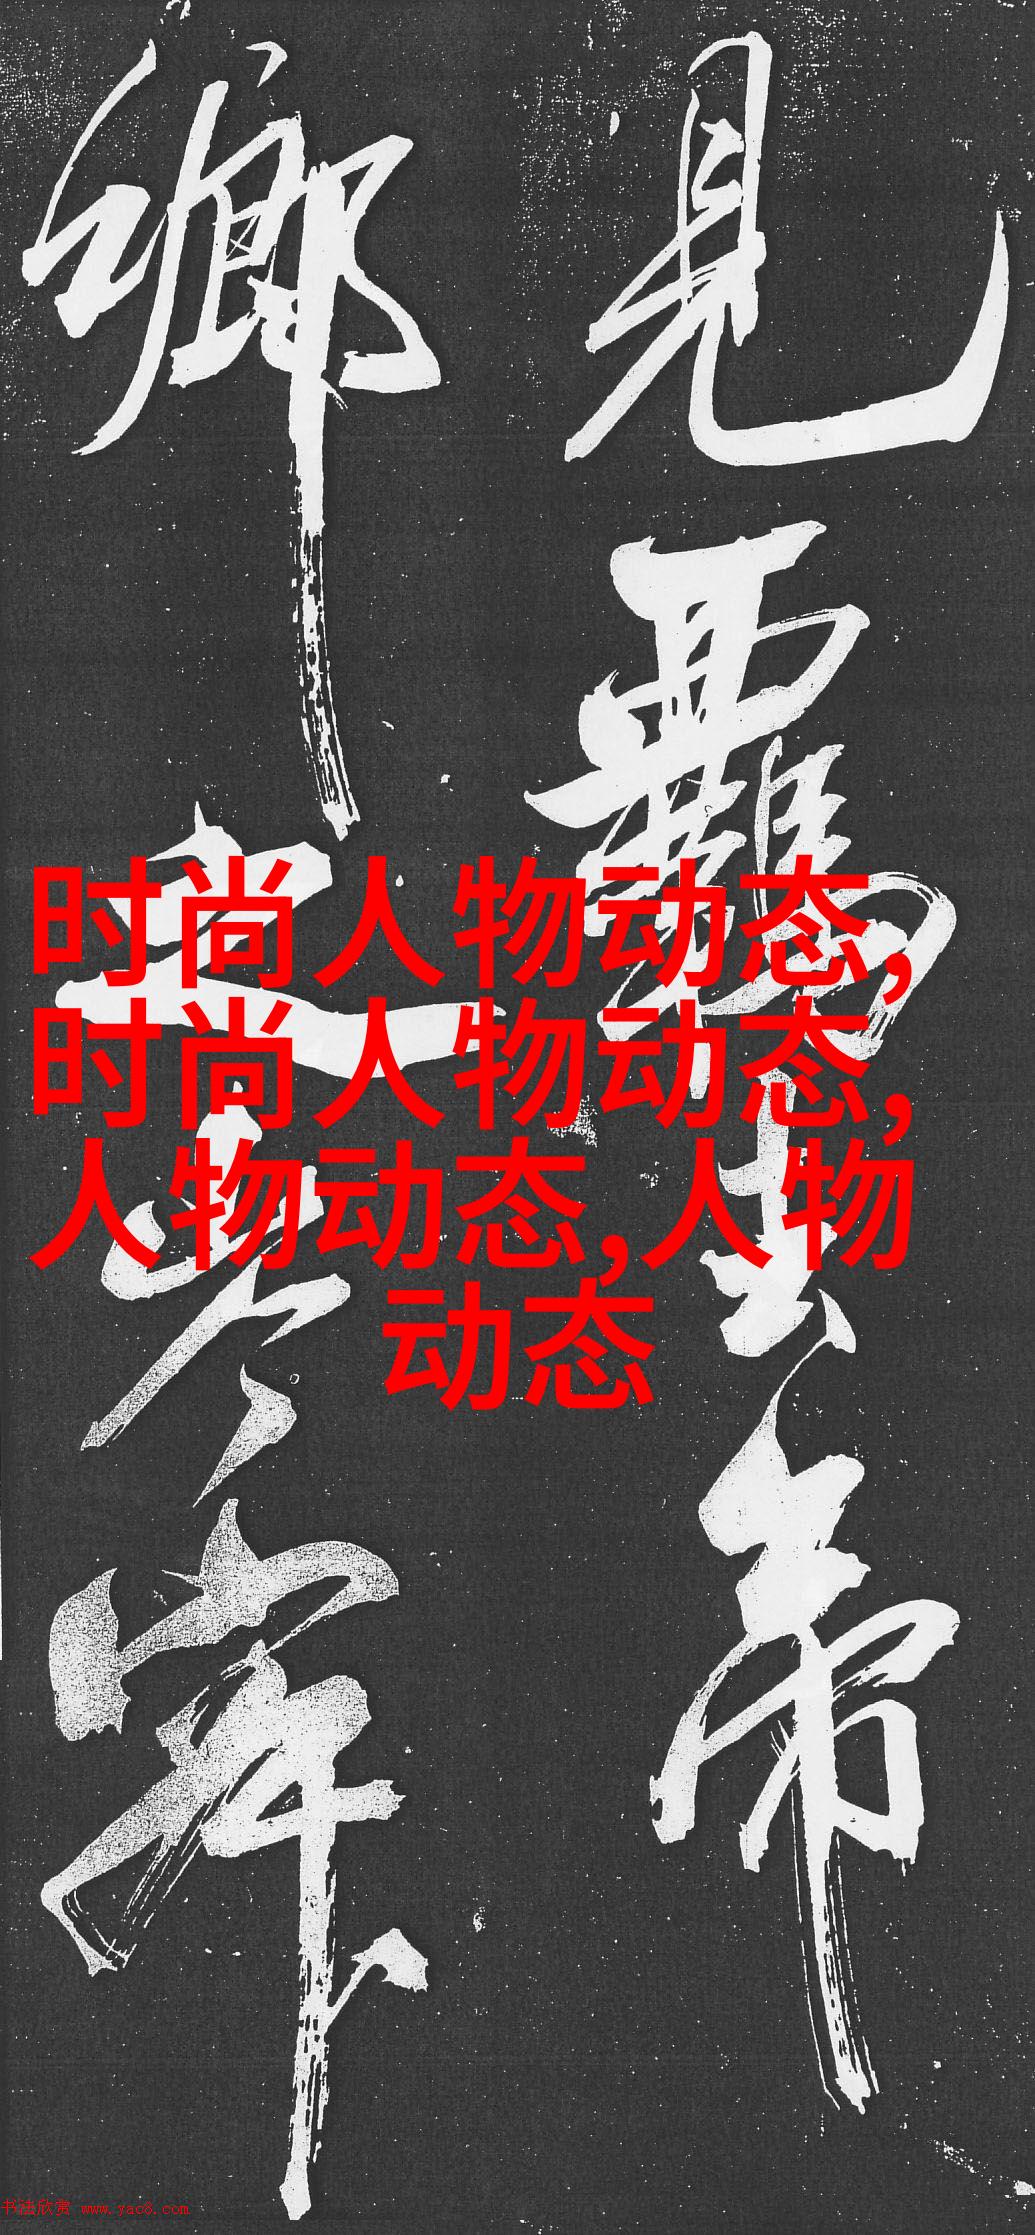 見羈去帝
鄉之岑寂
时尚人物动态,
时尚人物动态,
人物动态,人物
动态
书法欣赏 www.yac8.com